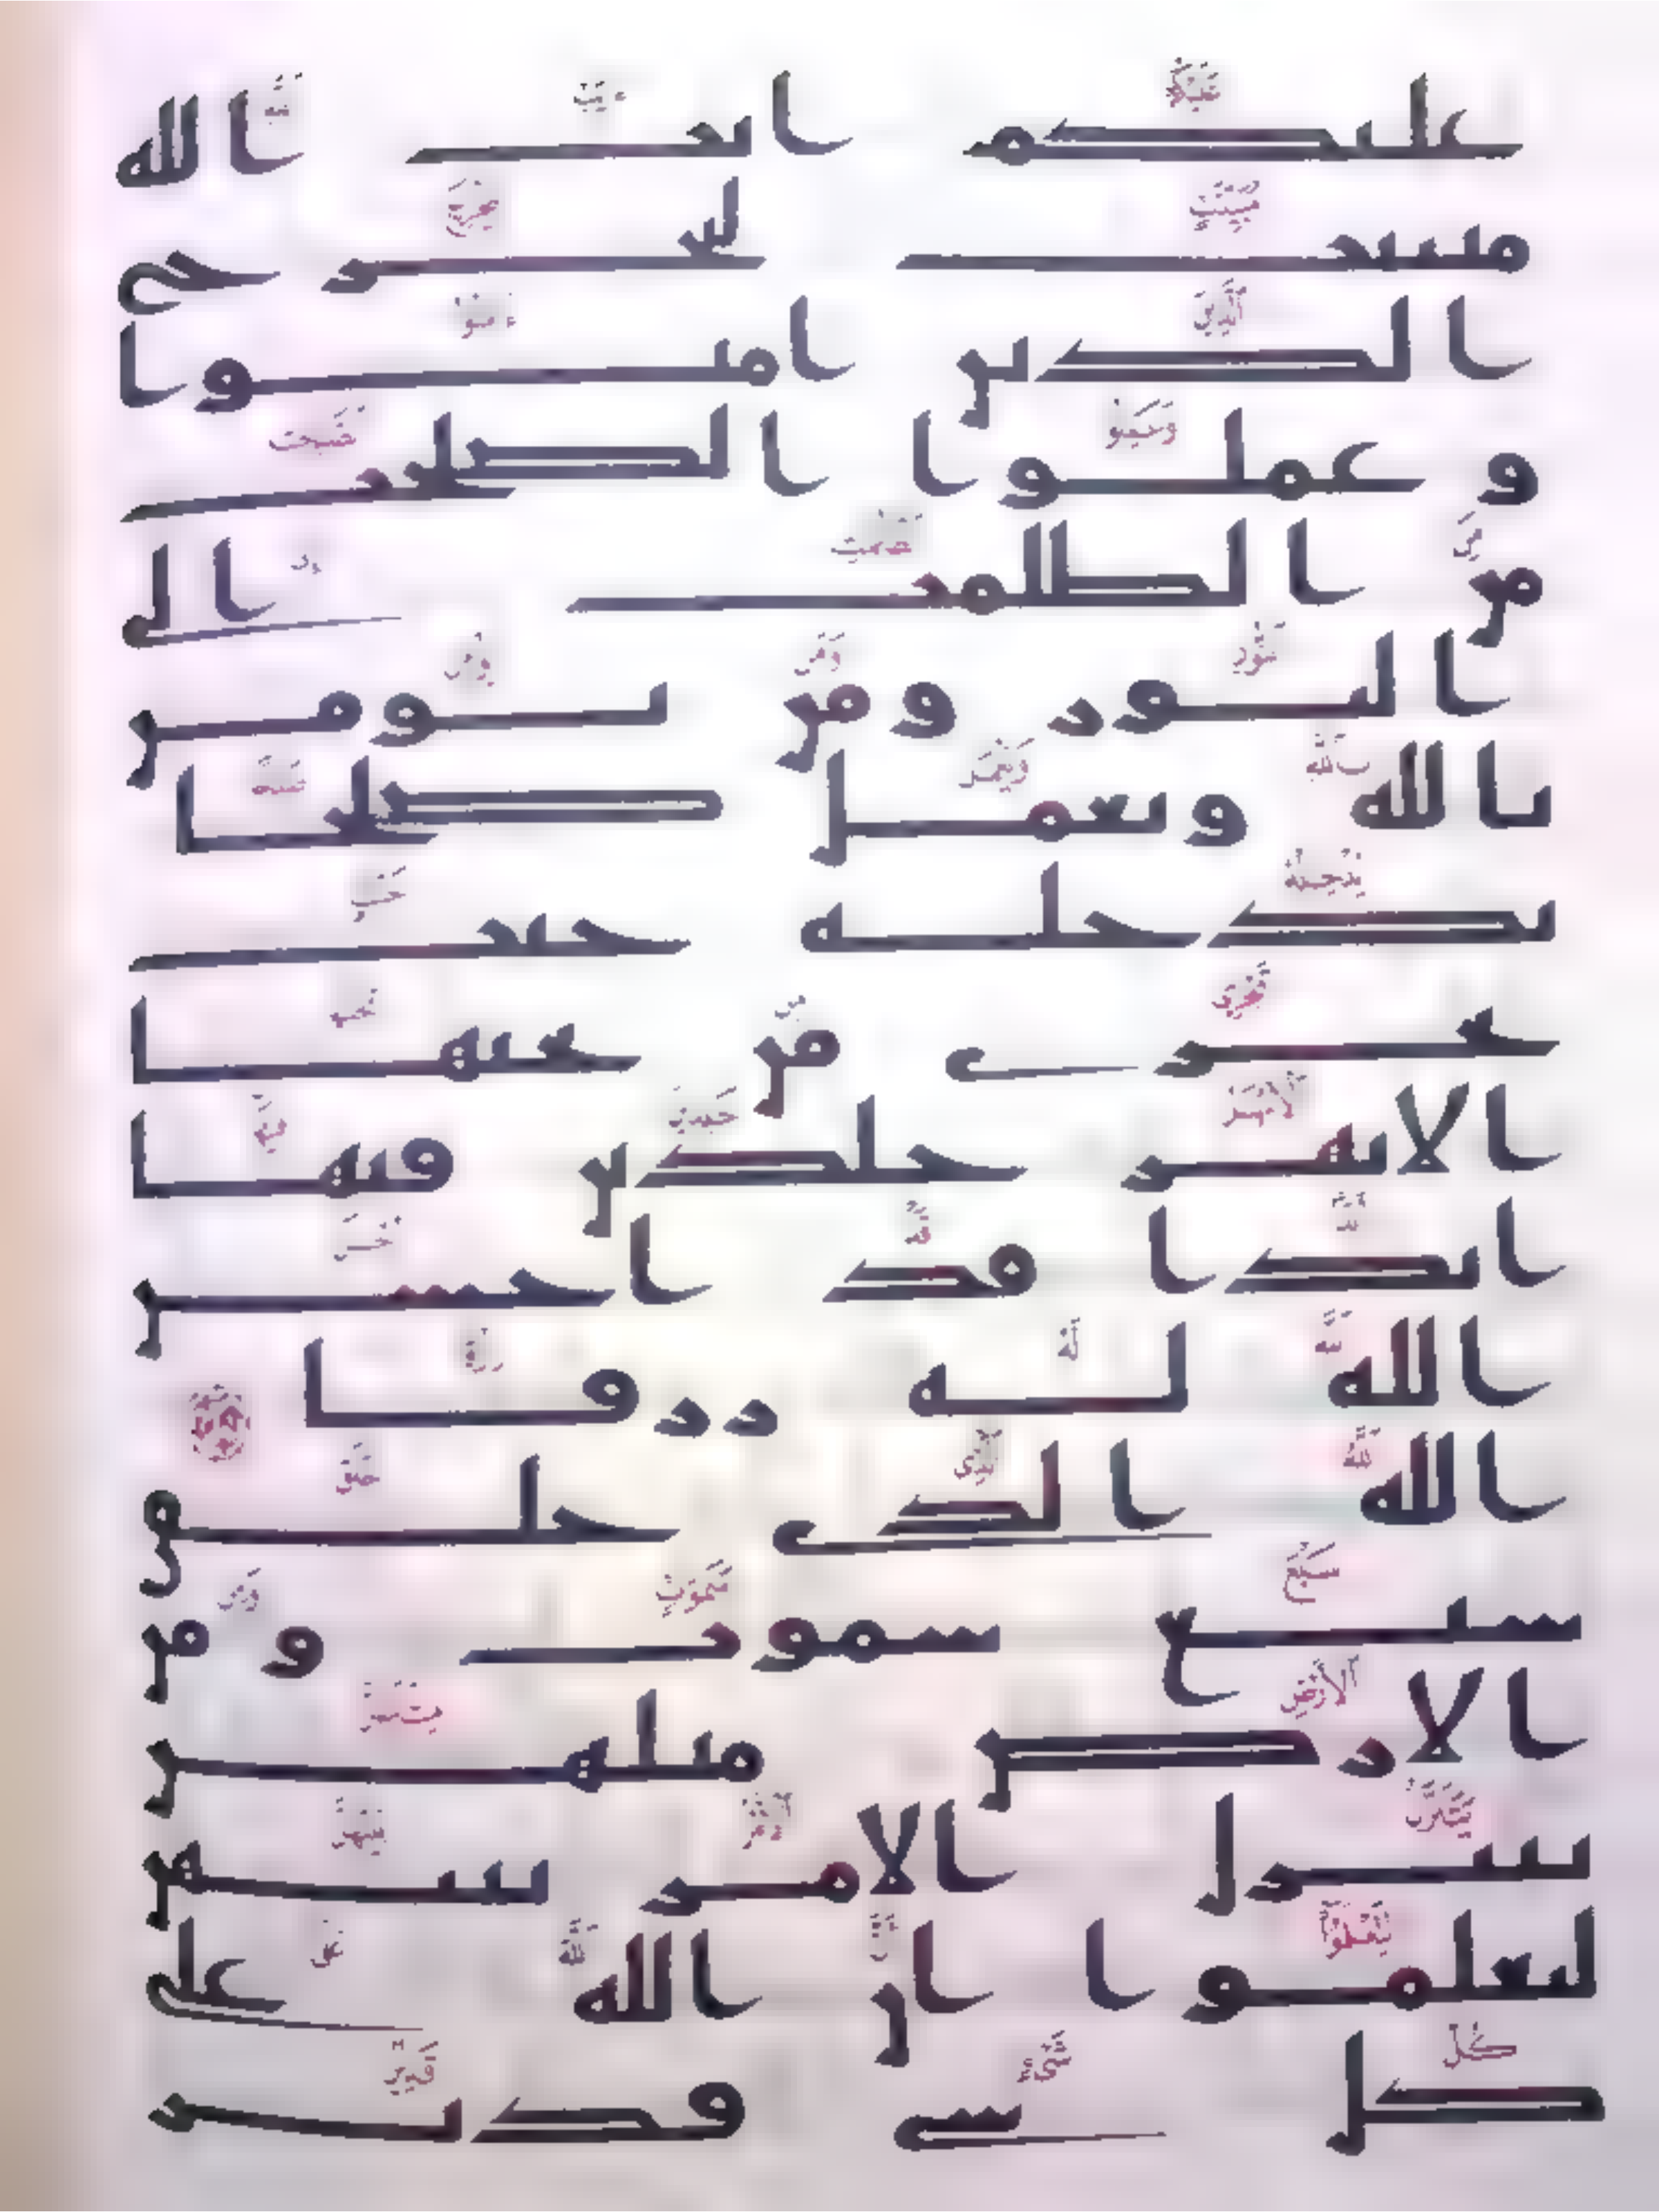 عليكم ايت الله
مبينت ليخرج
الذين امنوا
و عملوا الصلحت
من الظلمت الى
النور ومن يومن
بالله ويعمل صلحا
يدخله جنت
تجرى من تحتها
الانهر خلدين فيها
ابدا قد احسن
الله له رزقا
الله الذى خلق
سبع سموت ومن
الارض مثلهن
يتنزل الامر بينهن
لتعلموا ان الله على
كل شى قدير